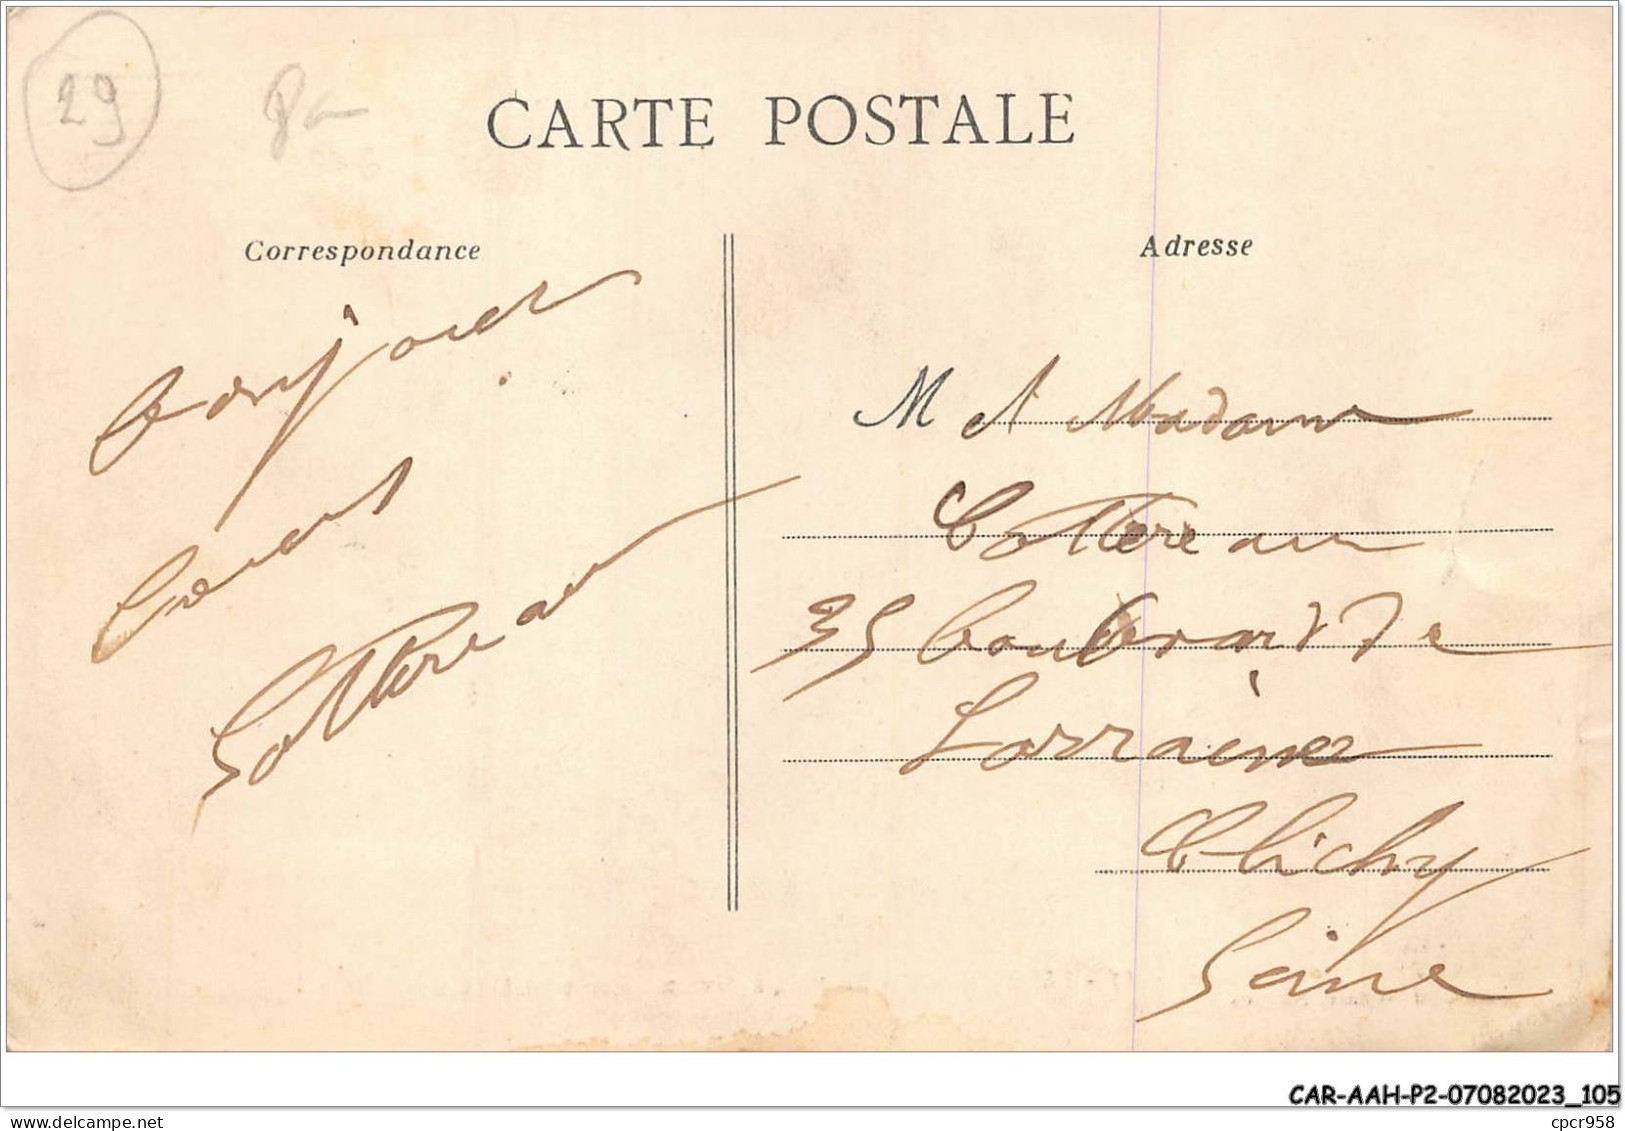 29
CARTE POSTALE
Correspondance
Adresse
bonjour
Cottereau
M et Madame
Cottereau
35 boulevard de
Lorraine
Clichy
Seine
CAR-AAH-P2-07082023_105
delcampe.net
cpcr958